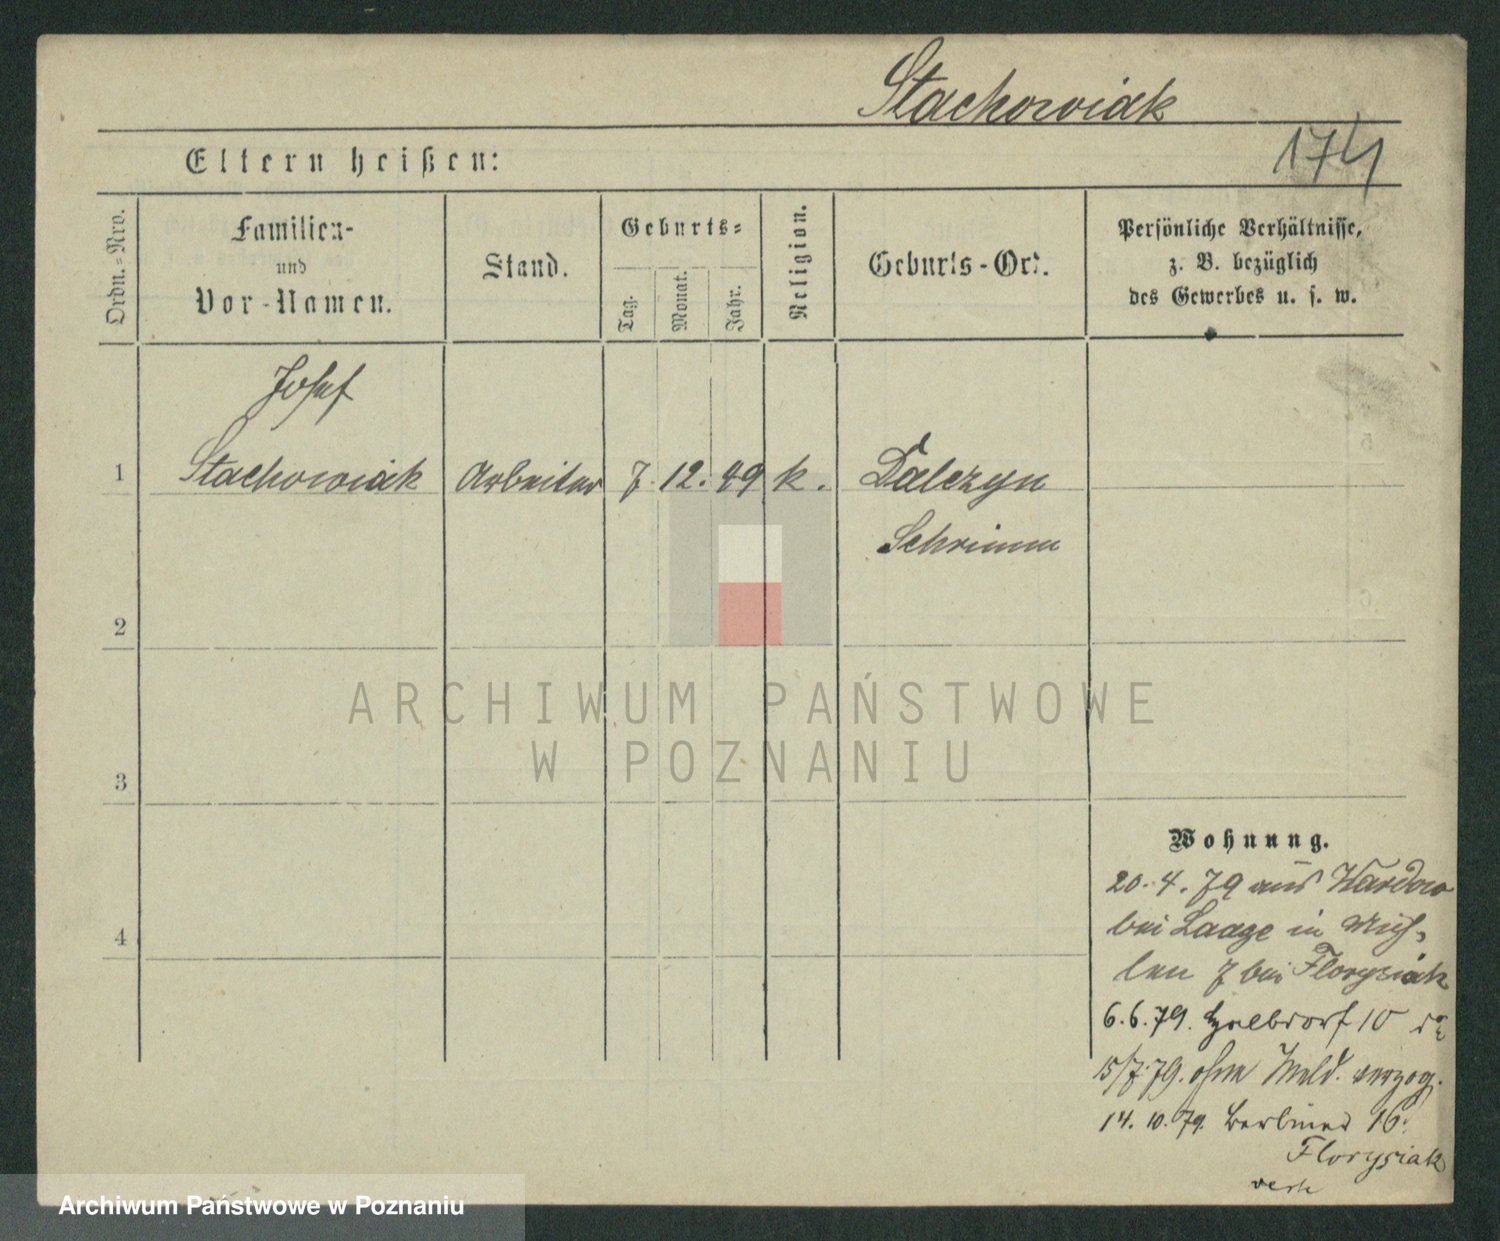 Stachowiak
174
Eltern heißen:
Ordn.=Nro.
Familien-
und
Vor-Namen.
Stand.
Geburts=
Tag.
Monat.
Jahr.
Religion.
Geburts-Ort.
Persönliche Verhältnisse,
z. B. bezüglich
des Gewerbes u. s. w.
Josef
1 Stachowiak Arbeiter 7. 12. 49 k. Dalczyn
Schrimm
2
3
4
ARCHIWUM PAŃSTWOWE
W POZNANIU
Wohnung.
20.4.79 aus Wardow
bei Laage in Müh-
len 7 bei Florysiak
6.6.79. Halbdorf 10
15/7.79. ohne Meld. verzog.
14.10.79. Berliner 16.
Florysiak
Archiwum Państwowe w Poznaniu